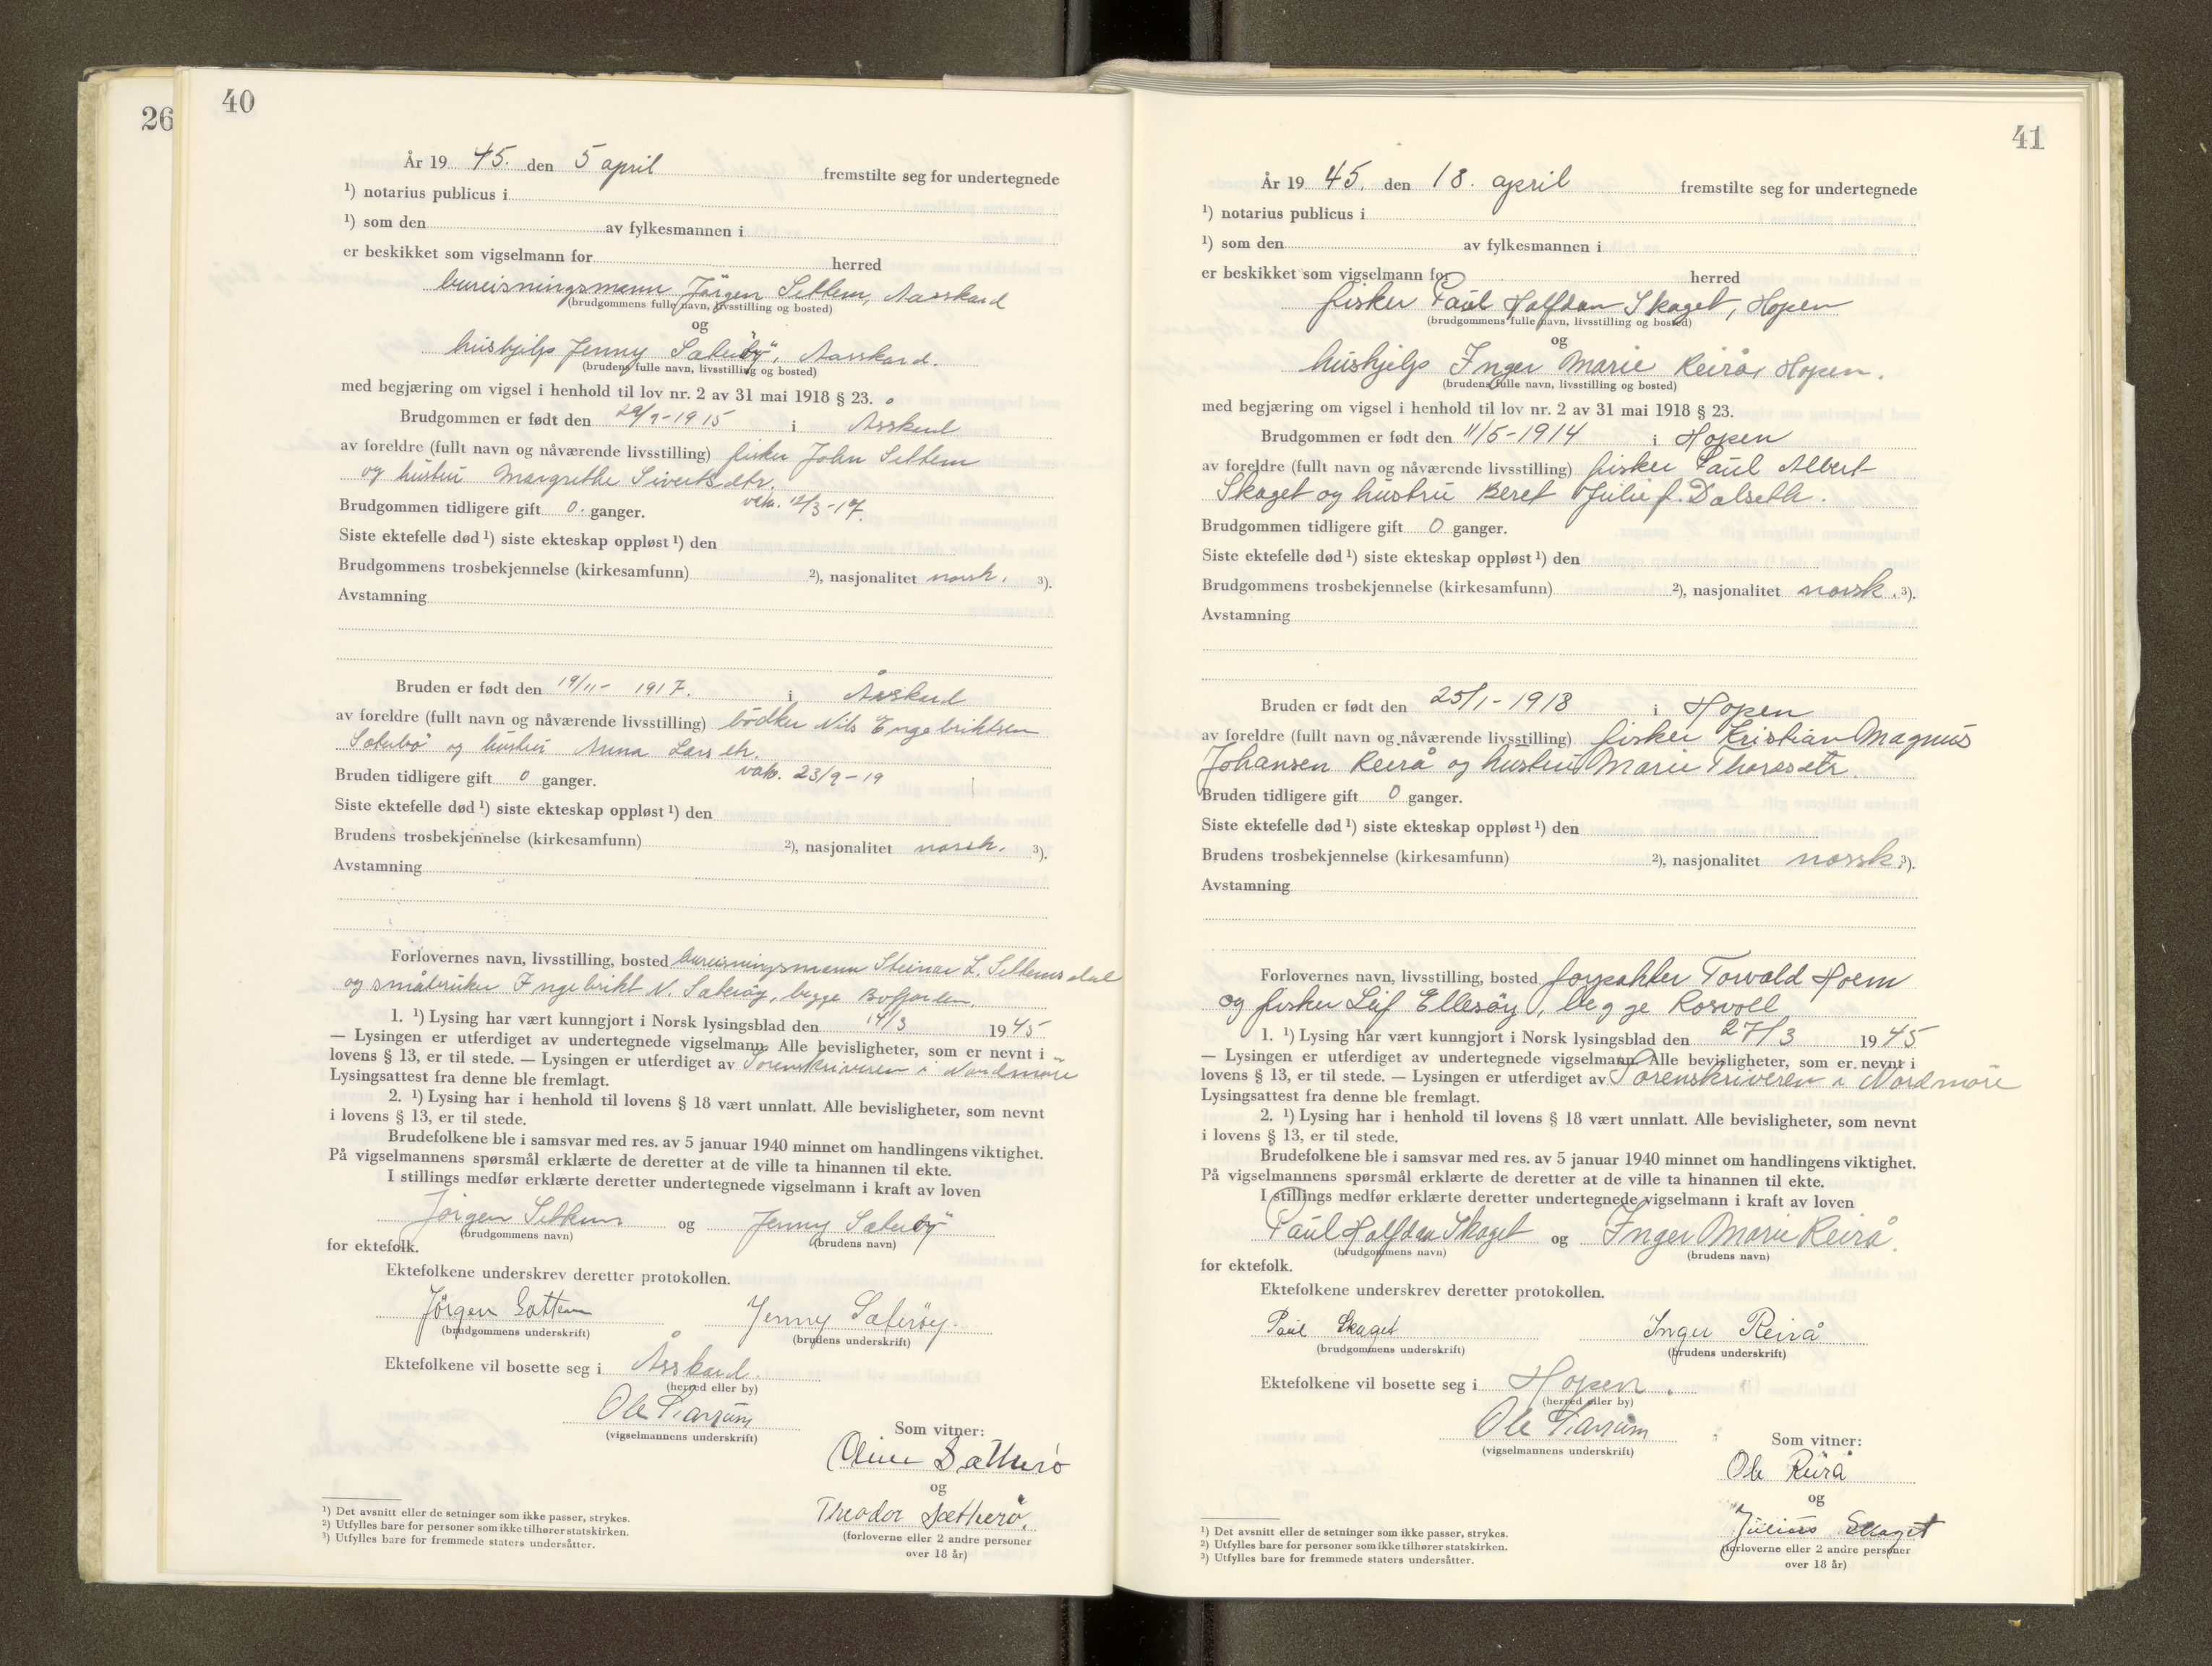 26
40
År 19 45. den 5 april fremstilte seg for undertegnede
¹) notarius publicus i
¹) som den av fylkesmannen i
er beskikket som vigselmann for herred
bureisningsmann Jörgen Settem, Aasskard
(brudgommens fulle navn, livsstilling og bosted)
og
hushjelp Jenny Säteröy, Aasskard.
(brudens fulle navn, livsstilling og bosted)
med begjæring om vigsel i henhold til lov nr. 2 av 31 mai 1918 § 23.
Brudgommen er født den 29/9-1915 i Åsskard
av foreldre (fullt navn og nåværende livsstilling) fisker John Settem
og hustru Margrethe Sivertsdtr.
Brudgommen tidligere gift 0. ganger. vak. 12/3-17.
Siste ektefelle død ¹) siste ekteskap oppløst ¹) den
Brudgommens trosbekjennelse (kirkesamfunn) ²), nasjonalitet norsk. ³).
Avstamning
Bruden er født den 19/11- 1917. i Åsskard
av foreldre (fullt navn og nåværende livsstilling) bödker Nils Engebriktsen
og hustru Anna Larsdtr.
Bruden tidligere gift 0 ganger. vak. 23/9-19
Siste ektefelle død ¹) siste ekteskap oppløst ¹) den
Brudens trosbekjennelse (kirkesamfunn) ²), nasjonalitet norsk. ³).
Avstamning
Forlovernes navn, livsstilling, bosted bureisningsmann Steinar L. Settemsdal
og småbruker Ingebrikt N. Säteröy, begge Bøfjorden.
1. ¹) Lysing har vært kunngjort i Norsk lysingsblad den 14/3 1945
— Lysingen er utferdiget av undertegnede vigselmann. Alle bevisligheter, som er nevnt i
lovens § 13, er til stede. — Lysingen er utferdiget av Sorenskriveren i Nordmöre
Lysingsattest fra denne ble fremlagt.
2. ¹) Lysing har i henhold til lovens § 18 vært unnlatt. Alle bevisligheter, som nevnt
i lovens § 13, er til stede.
Brudefolkene ble i samsvar med res. av 5 januar 1940 minnet om handlingens viktighet.
På vigselmannens spørsmål erklærte de deretter at de ville ta hinannen til ekte.
I stillings medfør erklærte deretter undertegnede vigselmann i kraft av loven
Jörgen Settem og Jenny Säteröy
(brudgommens navn) (brudens navn)
for ektefolk.
Ektefolkene underskrev deretter protokollen.
Jörgen Settem Jenny Säteröy.
(brudgommens underskrift) (brudens underskrift)
Ektefolkene vil bosette seg i Åsskard.
(herred eller by)
Ole
(vigselmannens underskrift)
Som vitner:
Sætherø
og
Theodor Sætherø.
(forloverne eller 2 andre personer
over 18 år)
¹) Det avsnitt eller de setninger som ikke passer, strykes.
²) Utfylles bare for personer som ikke tilhører statskirken.
³) Utfylles bare for fremmede staters undersåtter.
41
År 19 45. den 18. april fremstilte seg for undertegnede
¹) notarius publicus i
¹) som den av fylkesmannen i
er beskikket som vigselmann for herred
fisker Paul Halfdan Skaget, Hopen
(brudgommens fulle navn, livsstilling og bosted)
og
hushjelp Inger Marie Reirå, Hopen.
(brudens fulle navn, livsstilling og bosted)
med begjæring om vigsel i henhold til lov nr. 2 av 31 mai 1918 § 23.
Brudgommen er født den 11/5-1914 i Hopen
av foreldre (fullt navn og nåværende livsstilling) fisker Paul Albert
Skaget og hustru Beret Julie f. Dalseth.
Brudgommen tidligere gift 0 ganger.
Siste ektefelle død ¹) siste ekteskap oppløst ¹) den
Brudgommens trosbekjennelse (kirkesamfunn) ²), nasjonalitet norsk. ³).
Avstamning
Bruden er født den 25/1-1918 i Hopen
av foreldre (fullt navn og nåværende livsstilling) fisker Kristian Magnus
Johansen Reirå og hustru Marie Thoresdtr.
Bruden tidligere gift 0 ganger.
Siste ektefelle død ¹) siste ekteskap oppløst ¹) den
Brudens trosbekjennelse (kirkesamfunn) ²), nasjonalitet norsk ³).
Avstamning
Forlovernes navn, livsstilling, bosted forpakter Torvald Hoem
og fisker Leif Ellesöy, begge Rosvoll
1. ¹) Lysing har vært kunngjort i Norsk lysingsblad den 27/3 1945
— Lysingen er utferdiget av undertegnede vigselmann. Alle bevisligheter, som er nevnt i
lovens § 13, er til stede. — Lysingen er utferdiget av Sorenskriveren i Nordmöre
Lysingsattest fra denne ble fremlagt.
2. ¹) Lysing har i henhold til lovens § 18 vært unnlatt. Alle bevisligheter, som nevnt
i lovens § 13, er til stede.
Brudefolkene ble i samsvar med res. av 5 januar 1940 minnet om handlingens viktighet.
På vigselmannens spørsmål erklærte de deretter at de ville ta hinannen til ekte.
I stillings medfør erklærte deretter undertegnede vigselmann i kraft av loven
Paul Halfdan Skaget og Inger Marie Reirå.
(brudgommens navn) (brudens navn)
for ektefolk.
Ektefolkene underskrev deretter protokollen.
Paul Skaget Inger Reirå
(brudgommens underskrift) (brudens underskrift)
Ektefolkene vil bosette seg i Hopen.
(herred eller by)
Ole
(vigselmannens underskrift)
Som vitner:
Ole Reirå
og
Skaget
(forloverne eller 2 andre personer
over 18 år)
¹) Det avsnitt eller de setninger som ikke passer, strykes.
²) Utfylles bare for personer som ikke tilhører statskirken.
³) Utfylles bare for fremmede staters undersåtter.